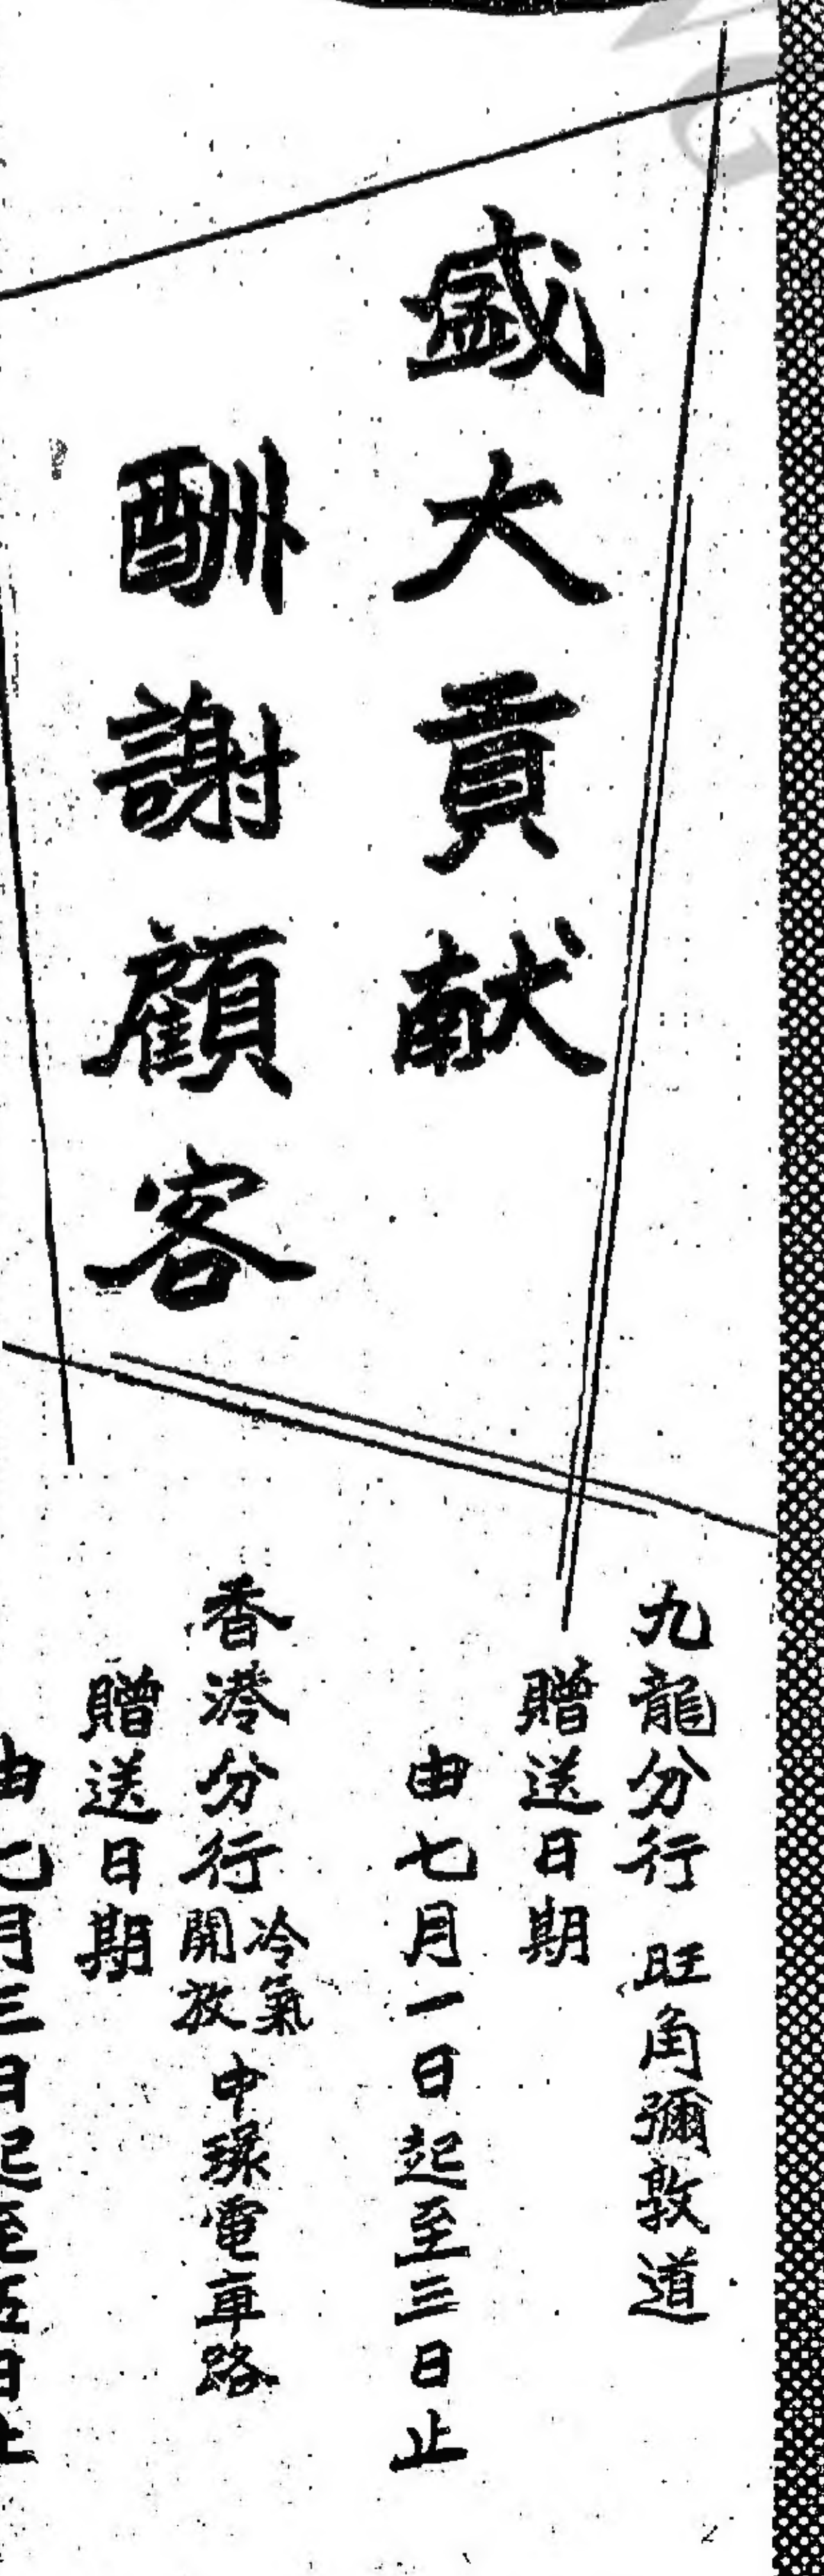 盛大貢献
酬謝顧客
九龍分行 旺角彌敦道
贈送日期
由七月一日起至三日止
香港分行 冷氣開放 中環電車路
贈送日期
由七月三日起至伍日止